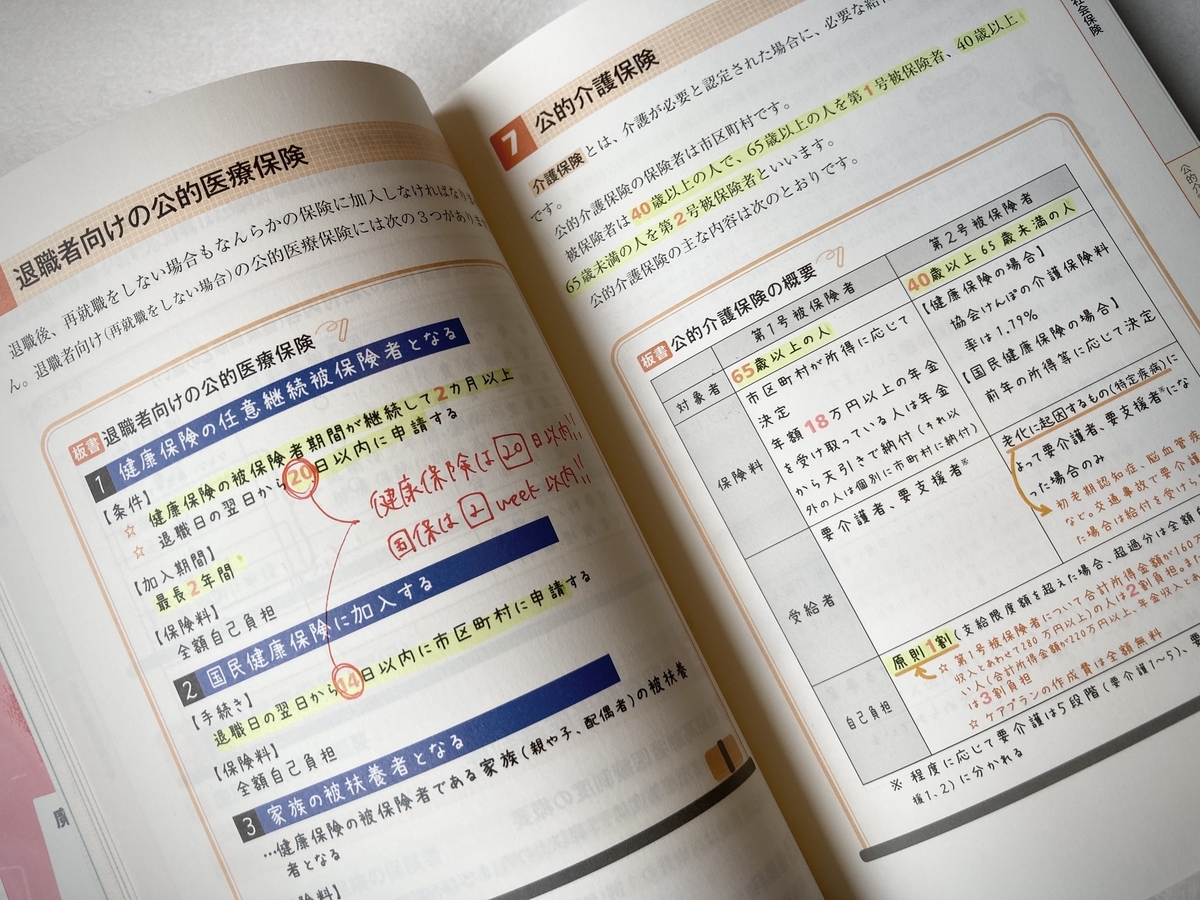 退職者向けの公的医療保険
退職後、再就職をしない場合もなんらかの保険に加入しなければなりま
ん。退職者向け(再就職をしない場合)の公的医療保険には次の3つがありま
板書 退職者向けの公的医療保険
1 健康保険の任意継続被保険者となる
【条件】
☆ 健康保険の被保険者期間が継続して2カ月以上
☆ 退職日の翌日から20日以内に申請する
【加入期間】
最長2年間
【保険料】
全額自己負担
健康保険は20日以内!!
国保は2week以内!!
2 国民健康保険に加入する
【手続き】
退職日の翌日から14日以内に市区町村に申請する
【保険料】
全額自己負担
3 家族の被扶養者となる
…健康保険の被保険者である家族(親や子、配偶者)の被扶養
者となる
険料】
社会保険
7 公的介護保険
介護保険とは、介護が必要と認定された場合に、必要な給
です。
公的介護保険の保険者は市区町村です。
被保険者は40歳以上の人で、65歳以上の人を第1号被保険者、40歳以上
65歳未満の人を第2号被保険者といいます。
公的介護保険の主な内容は次のとおりです。
板書 公的介護保険の概要
第1号被保険者
第2号被保険者
対象者
65歳以上の人
40歳以上65歳未満の人
保険料
市区町村が所得に応じて
決定
年額18万円以上の年金
を受け取っている人は年金
から天引きで納付(それ以
外の人は個別に市町村に納付)
【健康保険の場合】
協会けんぽの介護保険料
率は1.79%
【国民健康保険の場合】
前年の所得等に応じて決定
受給者
要介護者、要支援者※
老化に起因するもの(特定疾病)に
よって要介護者、要支援者※にな
った場合のみ
初老期認知症、脳血管疾
など。交通事故で要介護
た場合は給付を受けら
自己負担
原則1割(支給限度額を超えた場合、超過分は全額
☆ 第1号被保険者について合計所得金額が160万
収入とあわせて280万円以上)の人は2割負担。ま
い人(合計所得金額が220万円以上、年金収入と
は3割負担
☆ ケアプランの作成費は全額無料
※ 程度に応じて要介護は5段階(要介護1~5)、要
援1、2)に分かれる